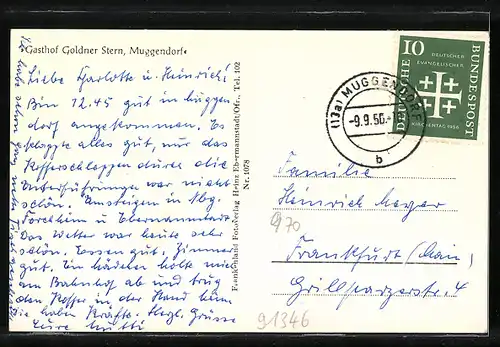 Gasthof Goldner Stern, Muggendorf
Liebe Charlotte u. Heinrich!
Bin 12.45 gut in Muggen
dorf angekommen. Es
klappte alles gut, nur das
Kofferschleppen durch die
Unterführungen war nicht
schön. Umsteigen in Nbg.
Forchheim u Ebermannstadt.
Das Wetter war heute sehr
schön. Essen gut. Zimmer
gut. Ein Mädchen holte mich
am Bahnhof ab und trug
den Koffer in der Hand
die halbe Herzl. Grüsse
Eure Mutti
Frankenland Fotoverlag Heinz Ebermannstadt/Ofr., Tel. 102
Nr. 1078
(13a) MUGGENDORF
-9.9.56.
b
10
DEUTSCHER
EVANGELISCHER
KIRCHENTAG 1956
DEUTSCHE
BUNDESPOST
Familie
Heinrich Meyer
970
Frankfurt (Main)
Grillparzerstr. 4
91346